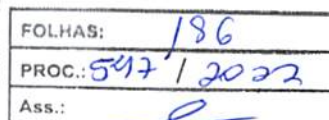 FOLHAS: 186
PROC.: 547 / 2022
Ass.: